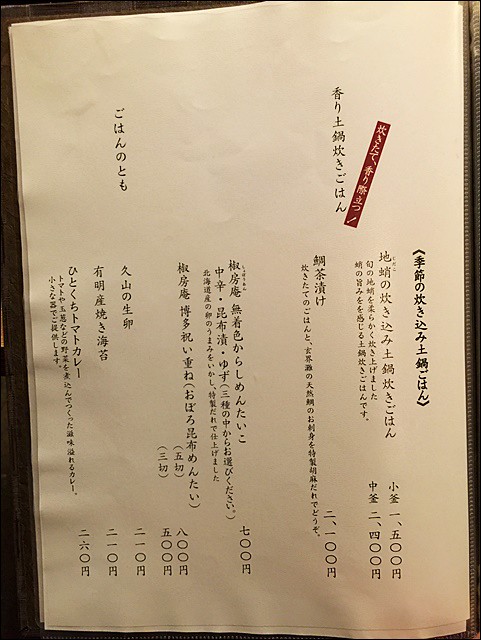 香り土鍋炊きごはん
炊きたて、香り際立つ!
《季節の炊き込み土鍋ごはん》
地蛸の炊き込み土鍋炊きごはん
じだこ
旬の地蛸を柔らかく炊き上げました
蛸の旨みをを感じる土鍋炊きごはんです。
小釜 一、五〇〇円
中釜 二、四〇〇円
鯛茶漬け
炊きたてのごはんと、玄界灘の天然鯛のお刺身を特製胡麻だれでどうぞ。
二、一〇〇円
ごはんのとも
椒房庵 無着色からしめんたいこ
しょぼうあん
中辛・昆布漬・ゆず(三種の中からお選びください。)
北海道産の卵のうまみをいかし、特製だれで仕上げました
七〇〇円
椒房庵 博多祝い重ね(おぼろ昆布めんたい)
(五切) 八〇〇円
(三切) 五〇〇円
久山の生卵
二一〇円
有明産焼き海苔
二一〇円
ひとくちトマトカレー
トマトや玉葱などの野菜を煮込んでつくった滋味溢れるカレー。
小さな器でご提供します。
二六〇円